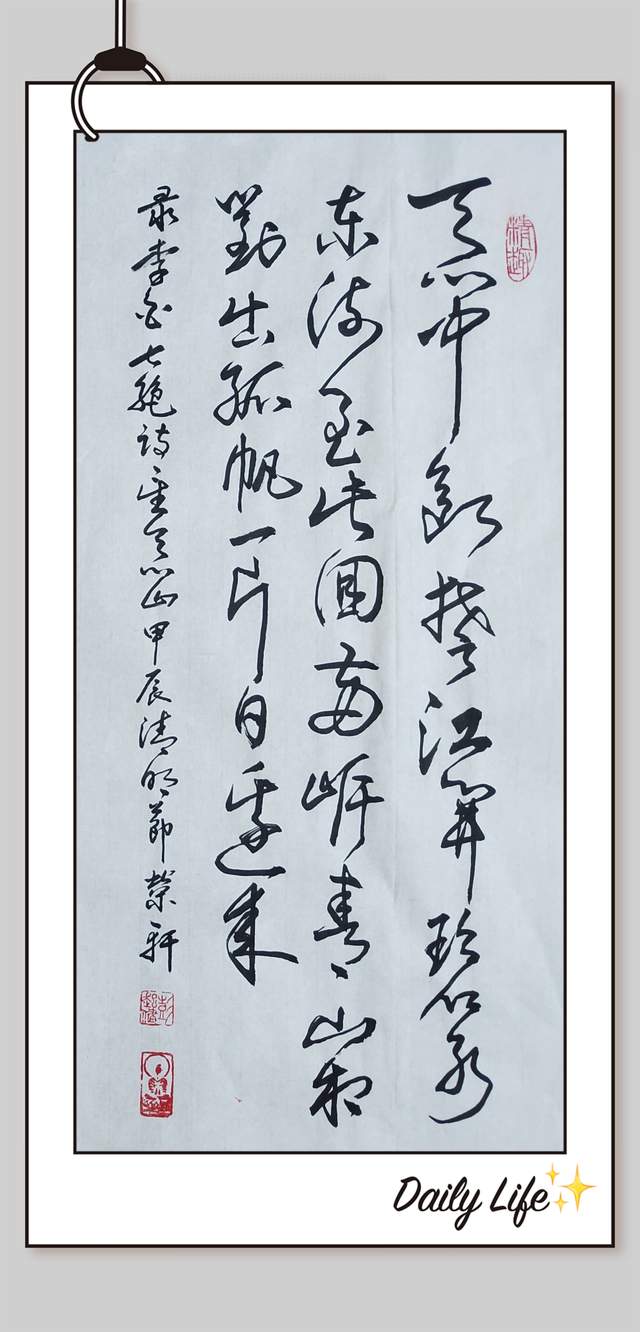 天門中斷楚江開碧水
東流至此回兩岸青山相
對出孤帆一片日邊來
录李白七絶詩望天門山甲辰清明節榮軒
Daily Life